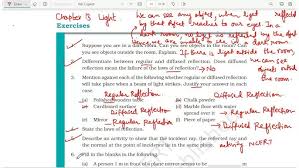 Chapter 13 Light
We can see any object, when light reflected
by that object reaches to our eyes. In a
dark room, no light is reflected by the
Exercises
1. Suppose you are in a dark room. Can you see objects in the room? Can
you see objects outside the room. Explain. If there is light outside the room, we
can see objects
outside the room.
2. Differentiate between regular and diffused reflection. Does diffused
reflection mean the failure of the laws of reflection?
3. Mention against each of the following whether regular or diffused reflection
will take place when a beam of light strikes. Justify your answer in each case.
Regular Reflection
(a) Polished wooden table
(b) Chalk powder
Diffused Reflection
(c) Cardboard surface
(d) Marble floor with water
spread over it
Regular Reflection
(e) Mirror
(f) Piece of paper
Regular Reflection
Diffused Reflection
4. State the laws of reflection.
5. Describe an activity to show that the incident ray, the reflected ray and
the normal at the point of incidence lie in the same plane.
activity NCERT
6. Fill in the blanks in the following.
(a) A person 1 m in front of a plane mirror seems to be